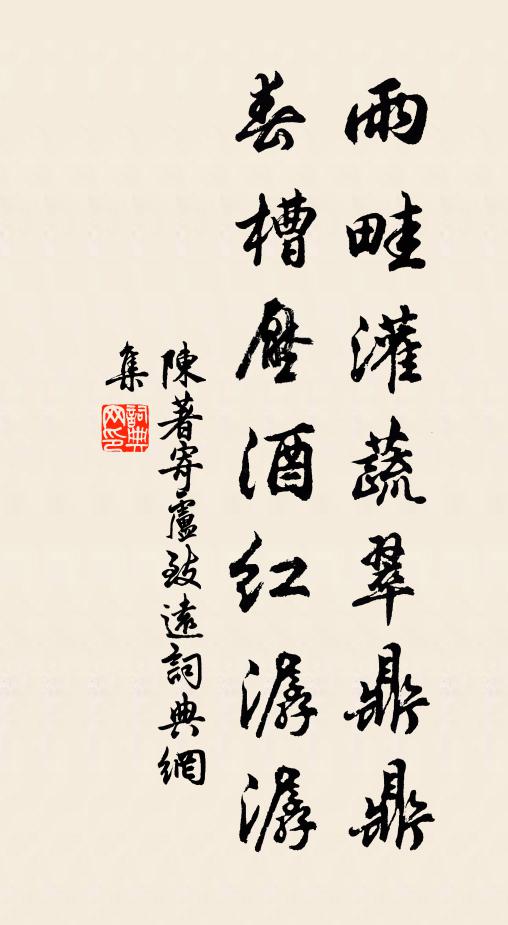 雨畦灌蔬翠鼎鼎
春槽壓酒紅潺潺
陳著寄盧致遠詞典網
集
詞典网印